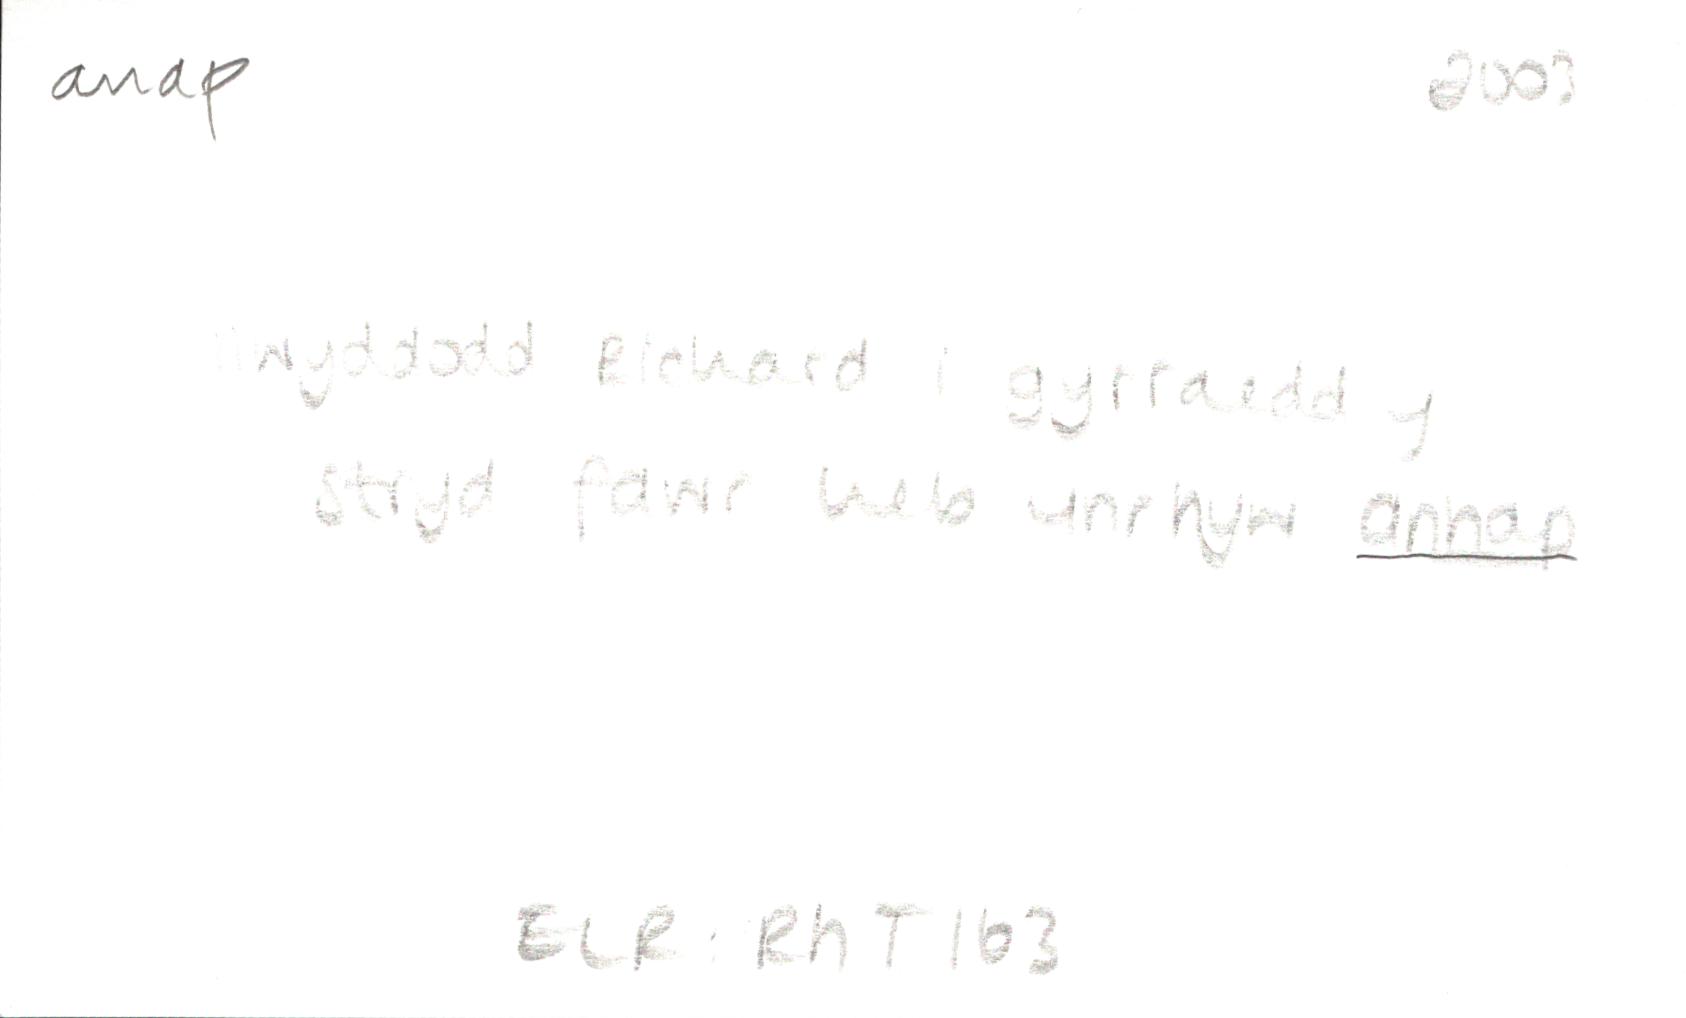 anap 2003
llwyddodd Richard i gyrraedd y
stryd fawr heb unrhyw anhap
ELR: RhT 163